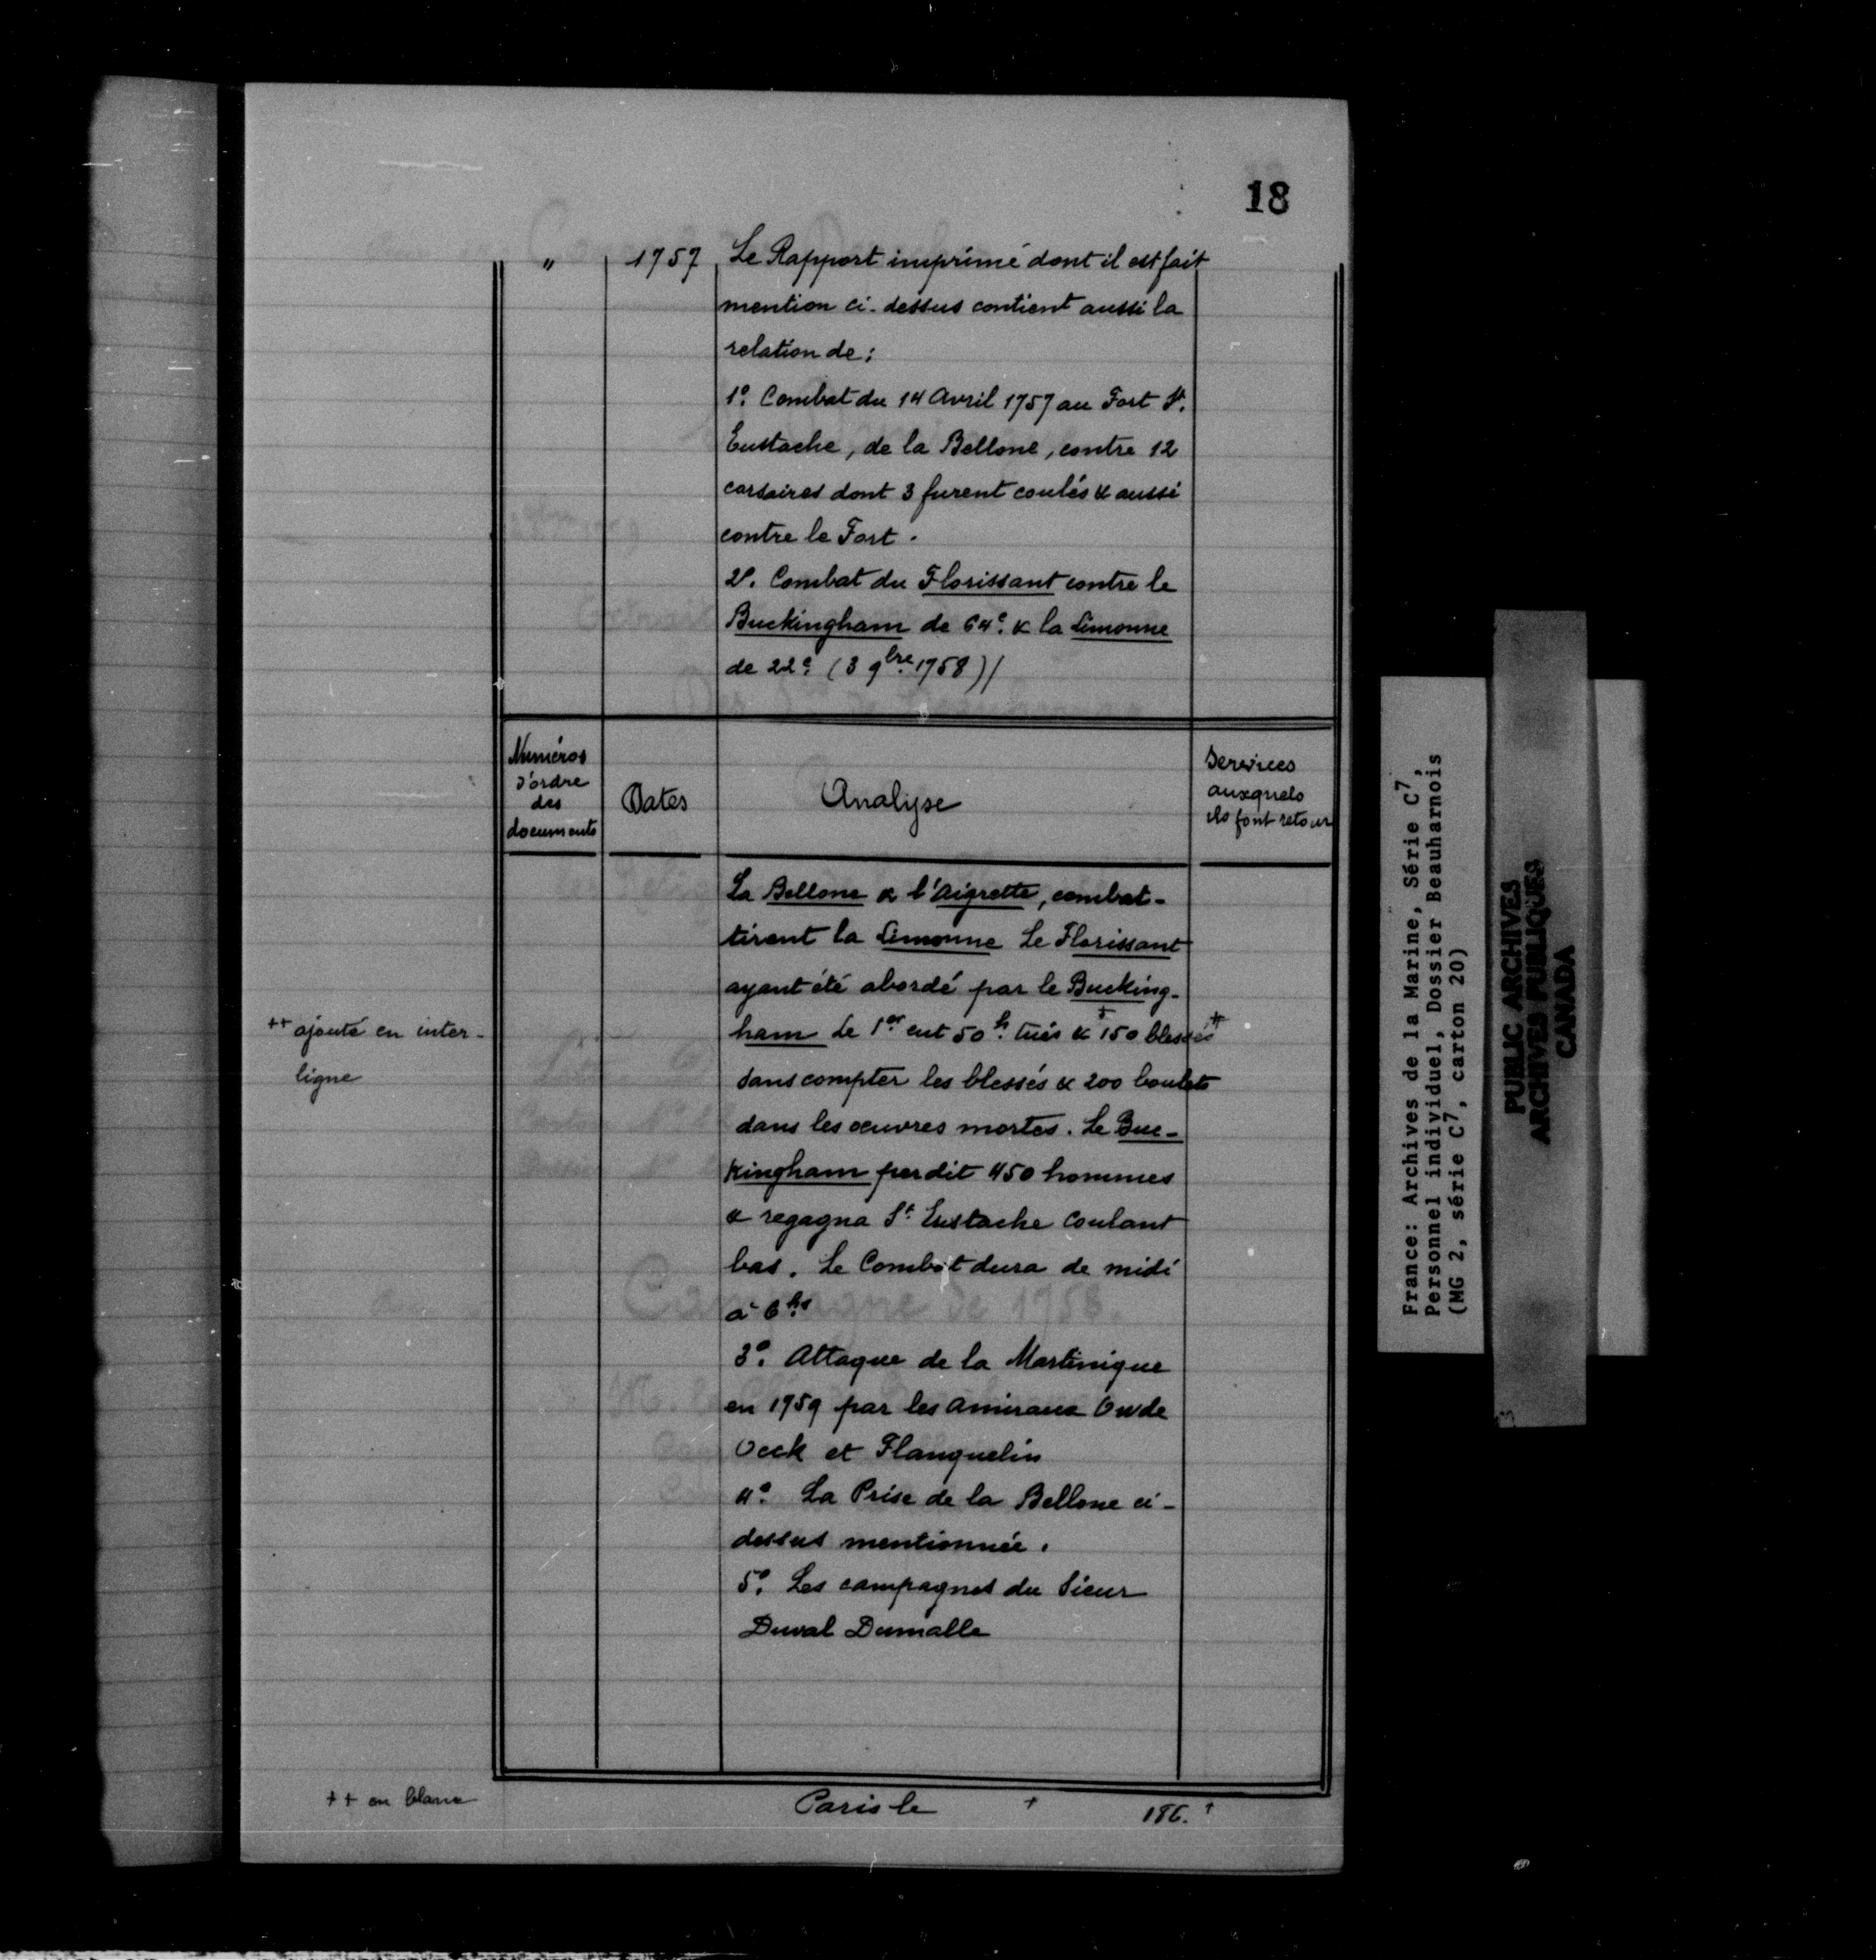 18
" 1757 Le Rapport imprimé dont il est fait
mention ci-dessus contient aussi la
relation de :
1º. Combat du 14 Avril 1757 au Fort St.
Eustache, de la Bellone, contre 12
corsaires dont 3 furent coulés & aussi
contre le Fort.
2º. Combat du Florissant contre le
Buckingham de 64c. & la Limonne
de 22c. (3 9bre 1758)/
Numéros
d'ordre
des
documents
Dates
Analyse
Services
auxquels
ils font retour
La Bellone & l'Aigrette, combat-
tirent la Limonne Le Florissant
ayant été abordé par le Bucking-
ham Le 1er eut 50 h. tués & + 150 blessés +
sans compter les blessés & 200 boulets
dans les œuvres mortes. Le Buc-
kingham perdit 450 hommes
& regagna St. Eustache coulant
bas. Le Combat dura de midi
à 6 hs
3º. Attaque de la Martinique
en 1759 par les Amiraux Owde
Ock et Flanquelin
4º. La Prise de la Bellone ci-
dessus mentionnée.
5º. Les campagnes du Sieur
Duval Dumalle
++ ajouté en inter-
ligne
++ en blanc
Paris le + 186. +
France: Archives de la Marine, Série C7,
Personnel individuel, Dossier Beauharnois
(MG 2, série C7, carton 20)
PUBLIC ARCHIVES
ARCHIVES PUBLIQUES
CANADA